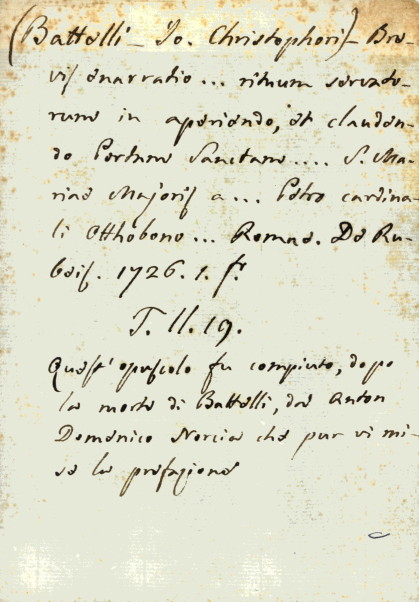 (Battelli - Jo. Christophori) - Bre-
vis enarratio ... rituum servato-
rum in aperiendo, et clauden-
do Portam Sanctam .... S. Ma-
riae Majoris a ... Petro cardina-
li Otthobono ... Romae. De Ru-
beis. 1726. 1. f.
T. II. 19.
Quest'opuscolo fu compiuto, dopo
la morte di Battelli, da Anton
Domenico Norcia che pur vi mi-
se la prefazione